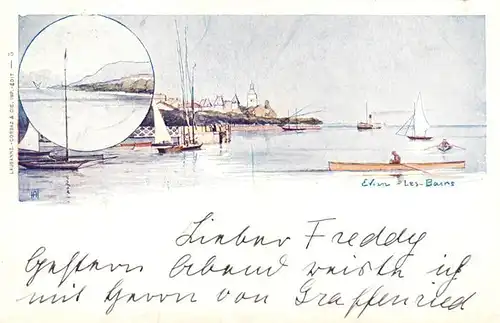 LAUSANNE - CORBAZ & CIE, IMP. EDIT. — 5
Evian - Les - Bains
Lieber Freddy
Gestern Abend reiste ich
mit Herrn von Graffenried